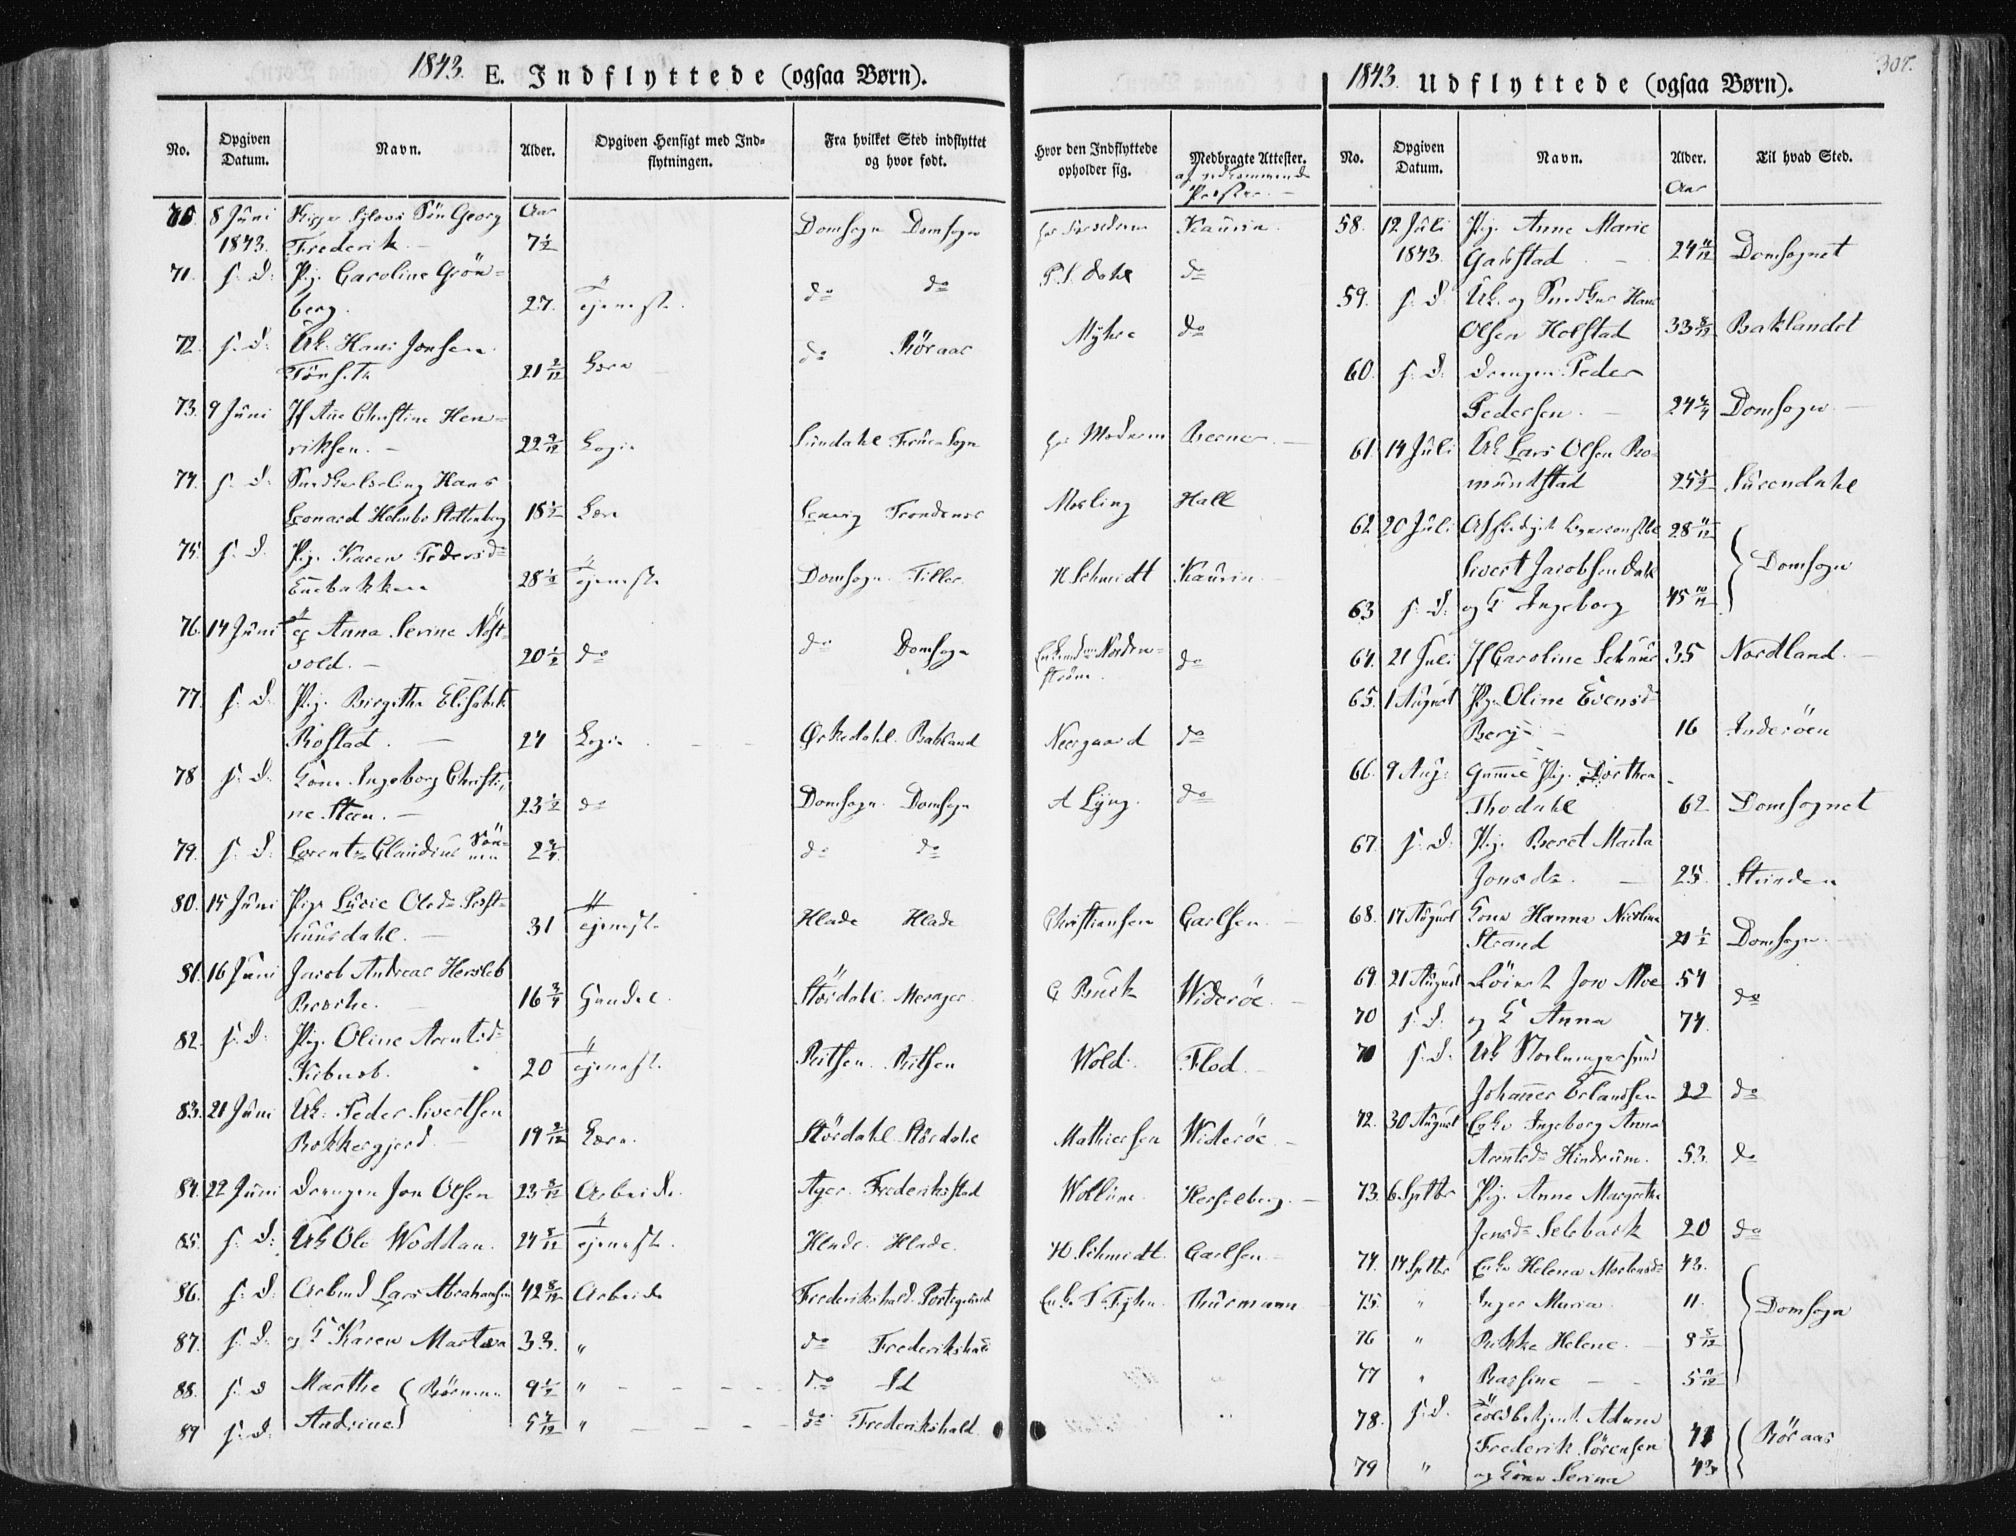 1843. E. Indflyttede (ogsaa Børn).
No. Opgiven Datum. Navn. Alder. Opgiven Hensigt med Indflytningen. Fra hvilket Sted indflyttet og hvor født. Hvor den Indflyttede opholder sig. Medbragte Attester. af vedkommende Præster.
70 8 Juni Søn Georg Aar
1843. Frederik 7 1/2 Domsogn Domsogn Kaurin
71. s. D. Pig. Caroline Grön-
berg. 27. Tjeneste. do do Dahl do
72. s. D. Uk. Hans Jonsen
Tönseth 21 2/12 Lære do Röraas Myhre do
73. 9 Juni Jf Ane Christine Hen-
riksen. 22 9/12 Logis Sundahl Frue Sogn hos Moderen Berner
74. s. D. Snedkerlærling Hans
Leonard Holmboe Stoltenberg 18 1/2 Lære Lenvig Trondenæs Mosling Hall
75. s. D. Pig. Karen Pedersd
Enebakken 28 1/2 Tjeneste Domsogn Tiller H Schmidt Kaurin
76. 14 Juni Anna Serine Nöst-
vold. 20 1/2 do do Domsogn Norden-
ström. do
77. s. D. Pig. Birgitha Elisabeth
Rostad. 24 Logis Ørkedahl. Bakland Neergaard do
78 s. D. Kone Ingeborg Christi-
ne Steen. 23 1/2 do Domsogn. Domsogn A Lyng. do
79. s. D. Lorentz Claudius Sön-
nen 2 3/4 do do
80. 15 Juni Pige Lucie Olsd
dahl. 31 Tjeneste Hlade Hlade Christiansen Carlsen.
81. 16 Juni Jacob Andreas Hersleb
Brosche. 16 3/4 Handel. Stördahl. Merager C Buck Widerøe.
82. s. D. Pig. Oline Arentsd
20 Tjeneste. Ritsen. Ritsen Wold. Flod.
83. 21 Juni Uk. Peder Sivertsen
Bakkegjerd. 19 2/12 Lære. Stördahl. Stördahl Mathiesen Widerøe.
84. 22 Juni Drengen Jon Olsen 23 Arbeide. Ager. Frederikstad Wollum. Hesselberg.
85. s. D. Uk Ole Woddan. 24 Tjeneste. Hlade. Hlade. H Schmidt. Carlsen
86. s. D. Arbmd Lars Abrahamsen 42 8/12 Arbeide Frederikshald. Porsgrund Enke Thurmann
87. s. D. og K Karen Martha 33. " do Frederikshald
88. s. D Marthe } Börnene 9 1/2 " do. Id
89 s. D. Andrine } 5 4/12 " do. Frederikshald.
1843. Udflyttede (ogsaa Børn). 307.
No. Opgiven Datum. Navn. Alder. Til hvad Sted.
Aar
58. 12 Juli Pig. Anne Marie
1843. Garstad 24 Domsognet
59. s. D. Uk. og Snedker Hans
Olsen Holstad 33 8/12 Baklandet
60. s. D. Drengen Peder
Pedersen. 24 Domsogn.
61. 14 Juli Uk Lars Olsen Ro-
mundstad 25 1/2 Surendahl
62. 20 Juli Afskediget 28 11/12
Sivert Jacobsen Dahl } Domsogn
63 s. D. og K Ingeborg 45 10/12
64. 21 Juli Jf Caroline Schnur 35 Nordland.
65. 1 August Pige Oline Evensd
Berg 16 Inderöen
66. 9 Aug. Gamle Pig. Dorthea
Thodahl 62 Domsognet
67. s. D. Pig. Beret Marta
Jonsdr. 25. Strinden
68. 17 August Kone Hanna Nicoline
Strand 21 1/2 Domsogn.
69. 21 August Jon Moe 54 do
70 s. D. og K Anna 74.
71 s. D. Uk
Johannes Erlandsen 22 do
72. 30 August Enke Ingeborg Anna
Arentsdr Hindrum. 53. do
73. 6 Septbr Pig. Anne Margretha
Jensdr Selebæk 20 do
74. 14 Septbr Enke Helena Mortensdr 43.
75. " Inger Maria 11. } Domsogn
76 " Rikke Helene. 8 5/12
77 " Bassine 5 11/12
78. s. D. Toldbetjent Adam
Frederik Sörensen 41 } Röraas
79 " og Kone Serina 43